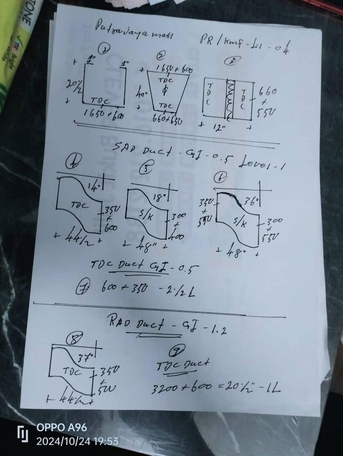 Putrajaya mall
PR/Kmf-L1-04
1
2
3
1650+600
TDC
20½
TDC
1650+600
40"
660+650
TDC
TDC
660
+
550
12"
SAD Duct - GI - 0.5 Level-1
4
5
6
14"
18"
36"
TDC
350
+
600
S/K
300
+
400
350
+
S/K
300
+
550
44½
48"
48"
TDC Duct GI - 0.5
7
600 + 350 - 2½L
RAD Duct - GI - 1.2
8
9
37"
TDC
350
+
500
44½
TDC Duct
3200+600=20½"-1L
OPPO A96
2024/10/24 19:53